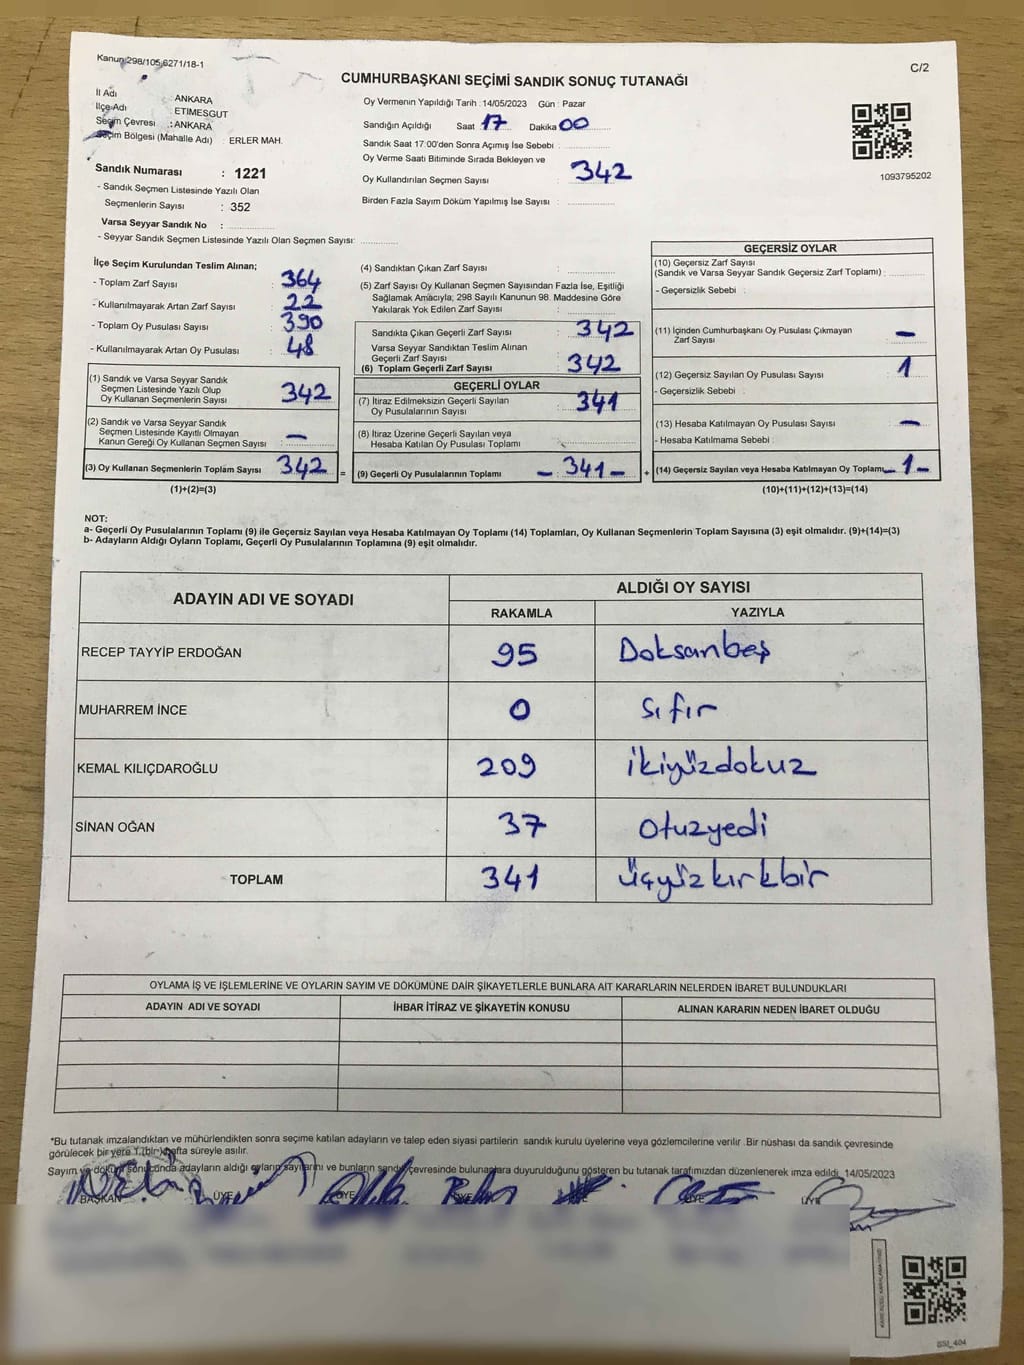 Kanun:298/105,6271/18-1
C/2
CUMHURBAŞKANI SEÇİMİ SANDIK SONUÇ TUTANAĞI
İl Adı : ANKARA
İlçe Adı : ETİMESGUT
Seçim Çevresi : ANKARA
Seçim Bölgesi (Mahalle Adı) : ERLER MAH.
Sandık Numarası : 1221
- Sandık Seçmen Listesinde Yazılı Olan
Seçmenlerin Sayısı : 352
Varsa Seyyar Sandık No :
- Seyyar Sandık Seçmen Listesinde Yazılı Olan Seçmen Sayısı:
Oy Vermenin Yapıldığı Tarih : 14/05/2023 Gün : Pazar
Sandığın Açıldığı Saat 17 Dakika 00
Sandık Saat 17:00'den Sonra Açımış İse Sebebi :
Oy Verme Saati Bitiminde Sırada Bekleyen ve
Oy Kullandırılan Seçmen Sayısı : 342
Birden Fazla Sayım Döküm Yapılmış İse Sayısı :
1093795202
İlçe Seçim Kurulundan Teslim Alınan;
- Toplam Zarf Sayısı : 364
- Kullanılmayarak Artan Zarf Sayısı : 22
- Toplam Oy Pusulası Sayısı : 390
- Kullanılmayarak Artan Oy Pusulası : 48
(1) Sandık ve Varsa Seyyar Sandık
Seçmen Listesinde Yazılı Olup
Oy Kullanan Seçmenlerin Sayısı : 342
(2) Sandık ve Varsa Seyyar Sandık
Seçmen Listesinde Kayıtlı Olmayan
Kanun Gereği Oy Kullanan Seçmen Sayısı : —
(3) Oy Kullanan Seçmenlerin Toplam Sayısı : 342
(1)+(2)=(3)
(4) Sandıktan Çıkan Zarf Sayısı :
(5) Zarf Sayısı Oy Kullanan Seçmen Sayısından Fazla İse, Eşitliği
Sağlamak Amacıyla; 298 Sayılı Kanunun 98. Maddesine Göre
Yakılarak Yok Edilen Zarf Sayısı :
Sandıkta Çıkan Geçerli Zarf Sayısı : 342
Varsa Seyyar Sandıktan Teslim Alınan
Geçerli Zarf Sayısı :
(6) Toplam Geçerli Zarf Sayısı : 342
GEÇERLİ OYLAR
(7) İtiraz Edilmeksizin Geçerli Sayılan
Oy Pusulalarının Sayısı : 341
(8) İtiraz Üzerine Geçerli Sayılan veya
Hesaba Katılan Oy Pusulası Toplamı :
= (9) Geçerli Oy Pusulalarının Toplamı - : 341 -
GEÇERSİZ OYLAR
(10) Geçersiz Zarf Sayısı
(Sandık ve Varsa Seyyar Sandık Geçersiz Zarf Toplamı) :
- Geçersizlik Sebebi :
(11) İçinden Cumhurbaşkanı Oy Pusulası Çıkmayan
Zarf Sayısı : —
(12) Geçersiz Sayılan Oy Pusulası Sayısı : 1
- Geçersizlik Sebebi :
(13) Hesaba Katılmayan Oy Pusulası Sayısı : —
- Hesaba Katılmama Sebebi :
+ (14) Geçersiz Sayılan veya Hesaba Katılmayan Oy Toplamı - 1 -
(10)+(11)+(12)+(13)=(14)
NOT:
a- Geçerli Oy Pusulalarının Toplamı (9) ile Geçersiz Sayılan veya Hesaba Katılmayan Oy Toplamı (14) Toplamları, Oy Kullanan Seçmenlerin Toplam Sayısına (3) eşit olmalıdır. (9)+(14)=(3)
b- Adayların Aldığı Oyların Toplamı, Geçerli Oy Pusulalarının Toplamına (9) eşit olmalıdır.
ADAYIN ADI VE SOYADI
ALDIĞI OY SAYISI
RAKAMLA YAZIYLA
RECEP TAYYİP ERDOĞAN 95 Doksanbeş
MUHARREM İNCE 0 sıfır
KEMAL KILIÇDAROĞLU 209 ikiyüzdokuz
SİNAN OĞAN 37 otuzyedi
TOPLAM 341 üçyüzkırkbir
OYLAMA İŞ VE İŞLEMLERİNE VE OYLARIN SAYIM VE DÖKÜMÜNE DAİR ŞİKAYETLERLE BUNLARA AİT KARARLARIN NELERDEN İBARET BULUNDUKLARI
ADAYIN ADI VE SOYADI İHBAR İTİRAZ VE ŞİKAYETİN KONUSU ALINAN KARARIN NEDEN İBARET OLDUĞU
*Bu tutanak imzalandıktan ve mühürlendikten sonra seçime katılan adayların ve talep eden siyasi partilerin sandık kurulu üyelerine veya gözlemcilerine verilir .Bir nüshası da sandık çevresinde
görülecek bir yere 1 (bir) hafta süreyle asılır.
Sayım ve döküm sonucunda adayların aldığı oyların sayılarını ve bunların sandık çevresinde bulunanlara duyurulduğunu gösteren bu tutanak tarafımızdan düzenlenerek imza edildi. 14/05/2023
BAŞKAN ÜYE ÜYE ÜYE ÜYE ÜYE
SSI_404